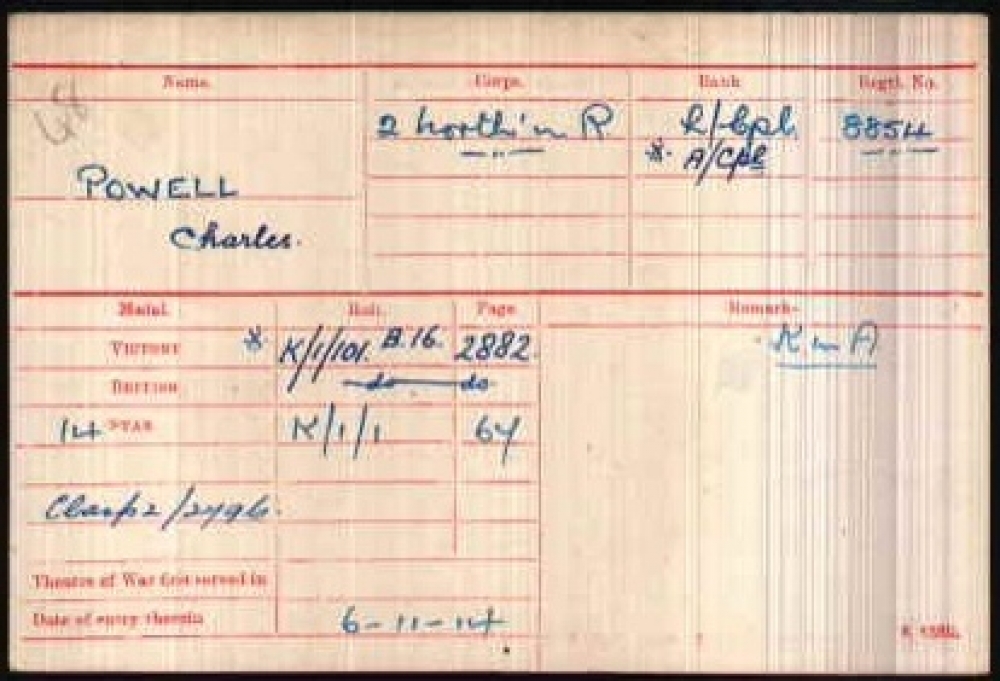 48
Name. Corps. Rank Regtl. No.
2 North'n R L/Cpl. 8854
—"— * A/Cpl —"—
POWELL
Charles.
Medal. Roll. Page Remarks
VICTORY * K/1/101. B.16. 2882. K in A
BRITISH do do
14 STAR K/1/1 64
Clasp
Theatre of War first served in
Date of entry therein 6-11-14